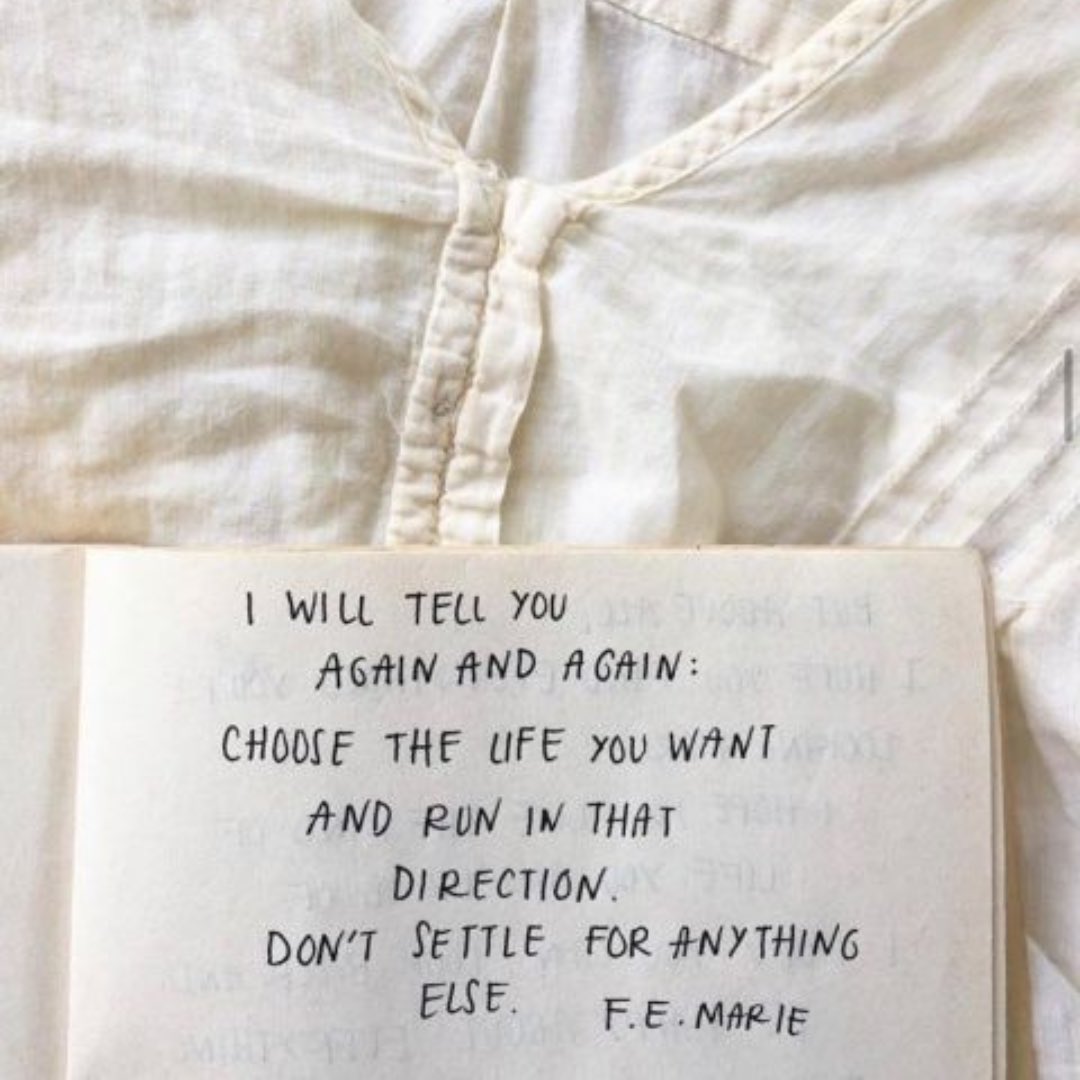 I WILL TELL YOU
AGAIN AND AGAIN:
CHOOSE THE LIFE YOU WANT
AND RUN IN THAT
DIRECTION.
DON'T SETTLE FOR ANYTHING
ELSE.
F.E. MARIE